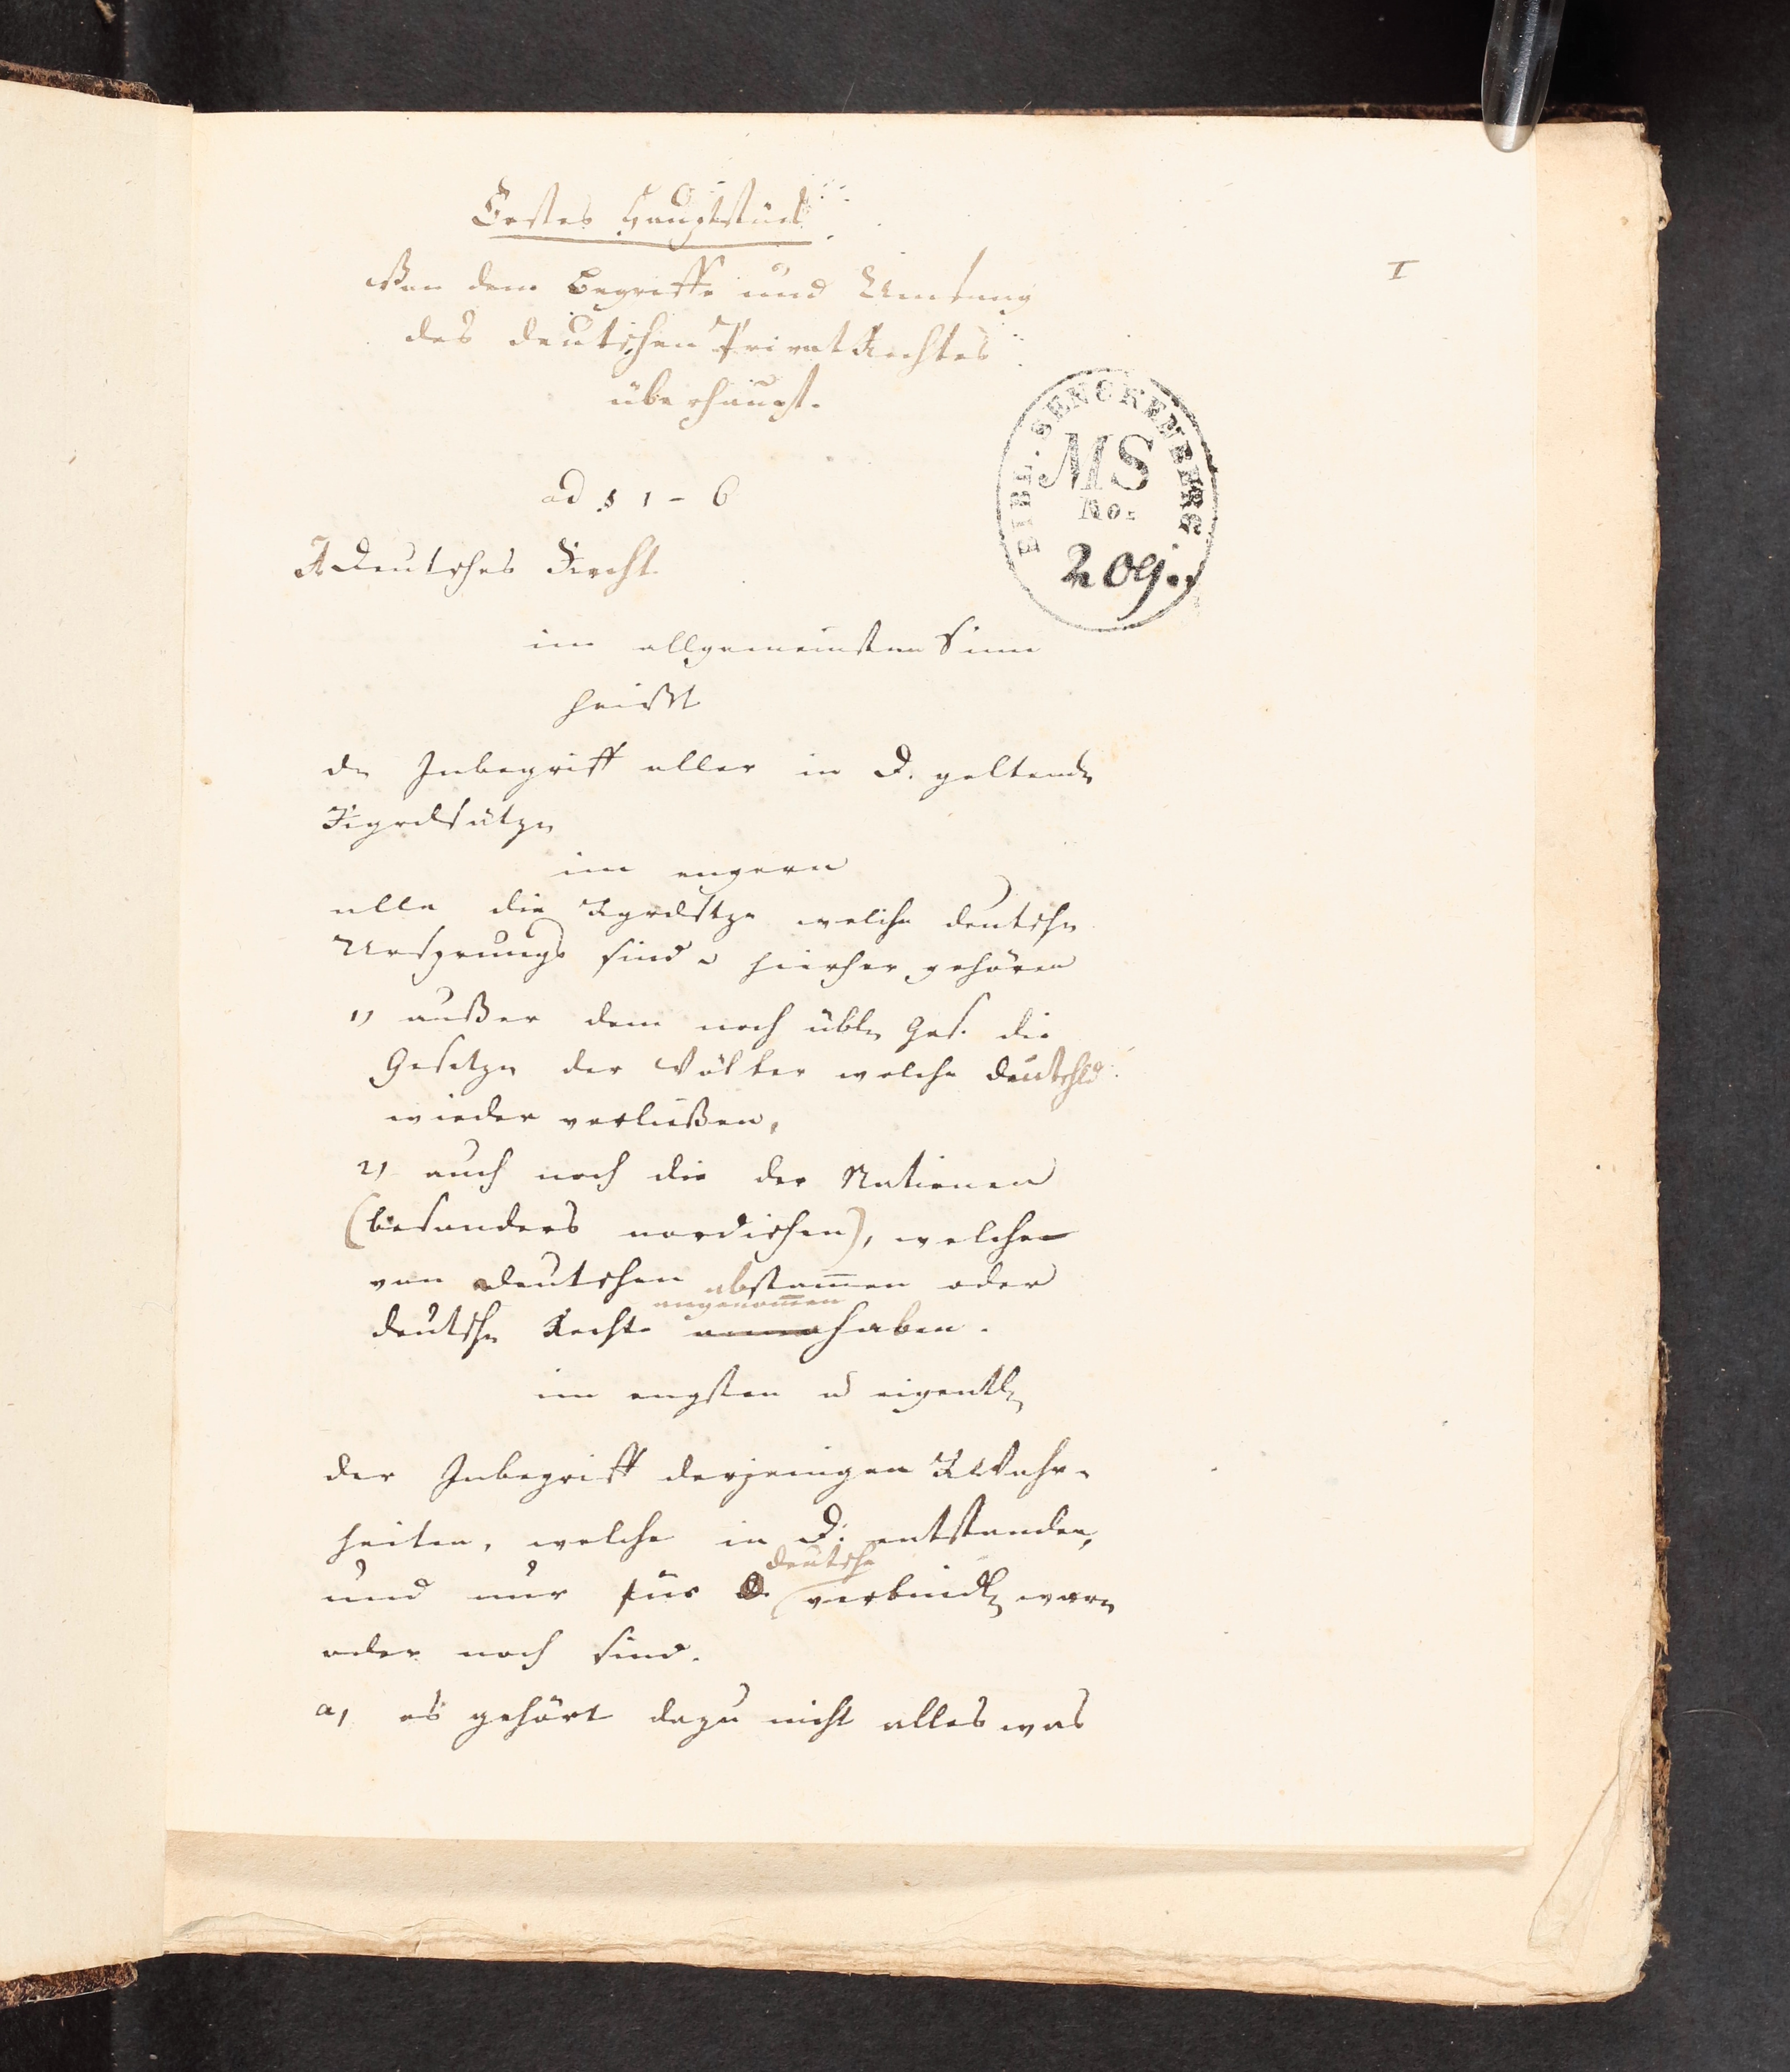 Erstes Hauptstück
Von dem Begriffe und Umfang
I
des deutschen Privat Rechtes
überhaupt.
BIBL. SENCKENBERG
MS
No:
209.
ad § 1 - 6
A Deutsches Recht
im allgemeinsten Sinne
heißt
der Inbegriff aller in D. geltenden
im engern
alle die welche deutschen
Ursprungs sind hierher gehören
1) außer dem noch übln Ges. die
Gesetze der Völker welche Deutschld
wieder verließen,
2) auch noch die der Nationen
(besonders nordischen), welche
von Deutschen abstam̅en oder
angenom̅en
deutsche Rechte haben.
im engsten u eigentln
der Inbegriff derjenigen RWahr-
heiten, welche in D. entstanden,
deutsche
und nur für D. verbindl waren
oder noch sind.
a, es gehört dazu nicht alles was